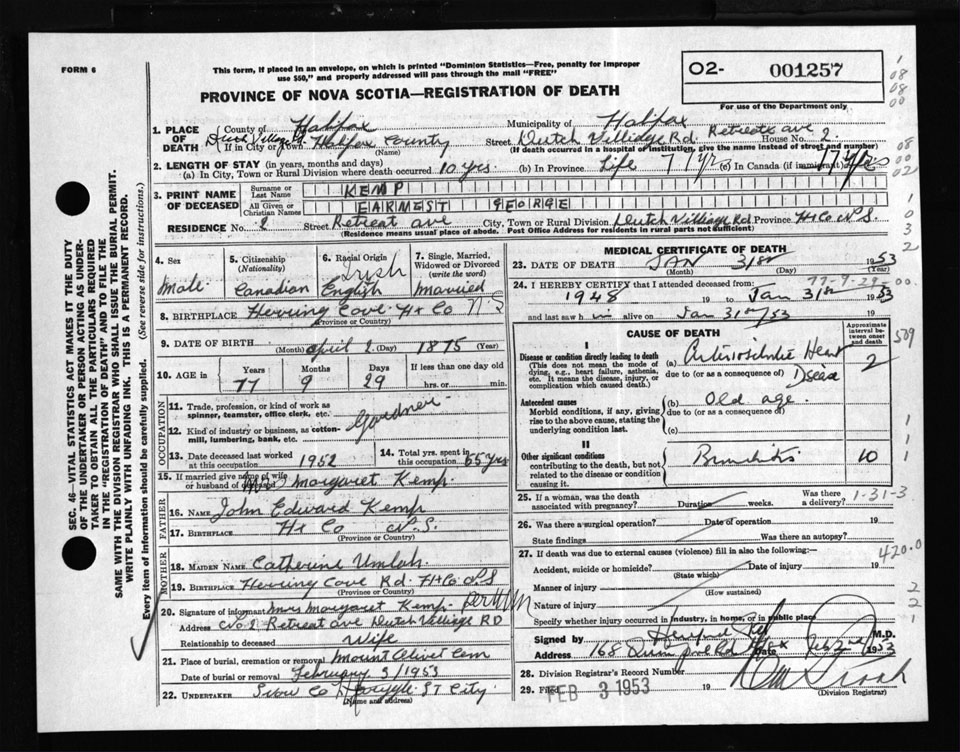 FORM 6
This form, if placed in an envelope, on which is printed "Dominion Statistics—Free, penalty for improper
use $50," and properly addressed will pass through the mail "FREE"
PROVINCE OF NOVA SCOTIA—REGISTRATION OF DEATH
O2- 001257
For use of the Department only
1. PLACE OF DEATH
County of Halifax Municipality of Halifax
If in City or Town Halifax County Street Dutch Villidge Rd. Retreate ave House No. 2
(Name) (If death occurred in a hospital or institution, give the name instead of street and number)
2. LENGTH OF STAY (in years, months and days)
(a) In City, Town or Rural Division where death occurred 10 yrs. (b) In Province Life 77 yr (c) In Canada (if immigrant) 77 yrs
3. PRINT NAME OF DECEASED
Surname or Last Name KEMP
All Given or Christian Names EARNEST GEORGE
RESIDENCE No. 2 Street Retreat ave City, Town or Rural Division Dutch Villiage Rd. Province Hx Co N.S.
(Residence means usual place of abode. Post Office Address for residents in rural parts not sufficient)
4. Sex Male
5. Citizenship (Nationality) Canadian
6. Racial Origin Irish English
7. Single, Married, Widowed or Divorced (write the word) Married
8. BIRTHPLACE Herring Cove Hx Co N S
(Province or Country)
9. DATE OF BIRTH (Month) April 2 (Day) 1875 (Year)
10. AGE in Years Months Days If less than one day old
77 9 29 hrs. or min.
OCCUPATION
11. Trade, profession, or kind of work as spinner, teamster, office clerk, etc. Gardner
12. Kind of industry or business, as cotton-mill, lumbering, bank, etc.
13. Date deceased last worked at this occupation 1952
14. Total yrs. spent in this occupation 55 yrs
15. If married give name of wife or husband of deceased Mrs Margaret Kemp.
FATHER
16. NAME John Edward Kemp
17. BIRTHPLACE Hx Co N.S.
(Province or Country)
MOTHER
18. MAIDEN NAME Catherine Umlah
19. BIRTHPLACE Herring Cove Rd. Hx Co N S
(Province or Country)
20. Signature of informant Mrs Margaret Kemp
Address No 2 Retreat ave Dutch Villiage RD
Relationship to deceased Wife
21. Place of burial, cremation or removal Mount Olivet Cem
Date of burial or removal February 3/1953
22. UNDERTAKER Snow Co Argyle ST City.
(Name and address)
MEDICAL CERTIFICATE OF DEATH
23. DATE OF DEATH JAN 31st 1953
(Month) (Day) (Year)
77-9-29
24. I HEREBY CERTIFY that I attended deceased from:
1948 19 to Jan 31st 1953
and last saw h im alive on Jan 31st/53
CAUSE OF DEATH
Approximate interval between onset and death
I
Disease or condition directly leading to death (a) Arteriosclerotic Heart Disease 2
(This does not mean the mode of dying, e.g., heart failure, asthenia, etc. It means the disease, injury, or complication which caused death.)
due to (or as a consequence of)
Antecedent causes (b) Old age.
Morbid conditions, if any, giving rise to the above cause, stating the underlying condition last.
due to (or as a consequence of)
(c)
II
Other significant conditions Bronchitis 10
contributing to the death, but not related to the disease or condition causing it.
25. If a woman, was the death associated with pregnancy? Duration weeks. Was there a delivery?
1-31-3
26. Was there a surgical operation? Date of operation 19
State findings Was there an autopsy?
27. If death was due to external causes (violence) fill in also the following:—
420.0
Accident, suicide or homicide? Date of injury 19
(State which)
Manner of injury
(How sustained)
Nature of injury
Specify whether injury occurred in industry, in home, or in public place
Signed by M.D.
Address 168 Hfx Date Feb 2nd 1953
28. Division Registrar's Record Number
29. Filed FEB 3 1953 19
(Division Registrar)
SEC. 46—VITAL STATISTICS ACT MAKES IT THE DUTY
OF THE UNDERTAKER OR PERSON ACTING AS UNDER-
TAKER TO OBTAIN ALL THE PARTICULARS REQUIRED
IN THE "REGISTRATION OF DEATH" AND TO FILE THE
SAME WITH THE DIVISION REGISTRAR WHO SHALL ISSUE THE BURIAL PERMIT.
WRITE PLAINLY WITH UNFADING INK. THIS IS A PERMANENT RECORD.
Every item of information should be carefully supplied. (See reverse side for instructions.)